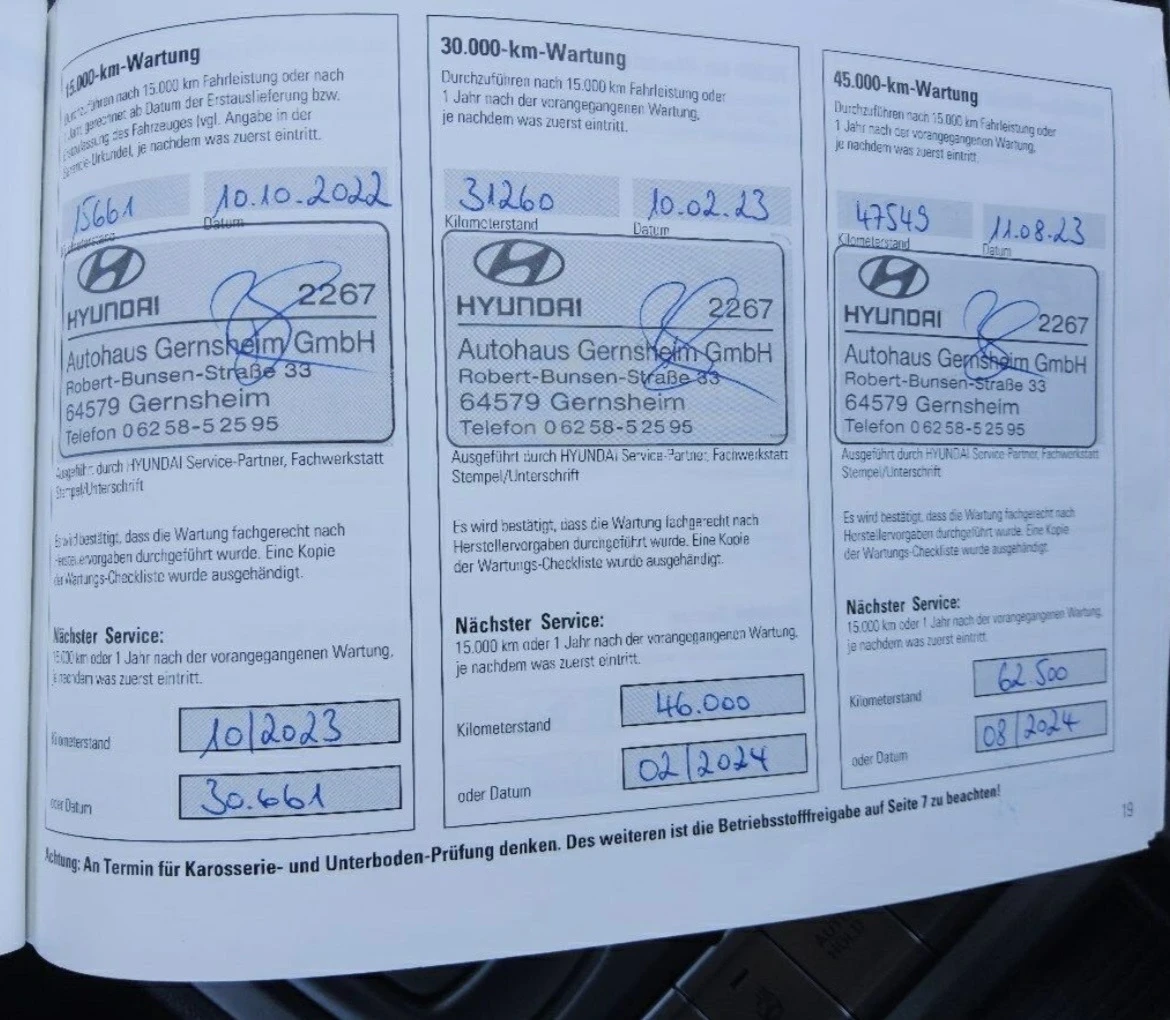 15.000-km-Wartung
Durchzuführen nach 15.000 km Fahrleistung oder nach
1 Jahr gerechnet ab Datum der Erstauslieferung bzw.
Erstzulassung des Fahrzeuges (vgl. Angabe in der
Garantie-Urkunde), je nachdem was zuerst eintritt.
15661 10.10.2022
Kilometerstand Datum
HYUNDAI 2267
Autohaus Gernsheim GmbH
Robert-Bunsen-Straße 33
64579 Gernsheim
Telefon 0 62 58-5 25 95
Ausgeführt durch HYUNDAI Service-Partner, Fachwerkstatt
Stempel/Unterschrift
Es wird bestätigt, dass die Wartung fachgerecht nach
Herstellervorgaben durchgeführt wurde. Eine Kopie
der Wartungs-Checkliste wurde ausgehändigt.
Nächster Service:
15.000 km oder 1 Jahr nach der vorangegangenen Wartung,
je nachdem was zuerst eintritt.
Kilometerstand 10/2023
oder Datum 30.661
30.000-km-Wartung
Durchzuführen nach 15.000 km Fahrleistung oder
1 Jahr nach der vorangegangenen Wartung,
je nachdem was zuerst eintritt.
31260 10.02.23
Kilometerstand Datum
HYUNDAI 2267
Autohaus Gernsheim GmbH
Robert-Bunsen-Straße 33
64579 Gernsheim
Telefon 0 62 58-5 25 95
Ausgeführt durch HYUNDAI Service-Partner, Fachwerkstatt
Stempel/Unterschrift
Es wird bestätigt, dass die Wartung fachgerecht nach
Herstellervorgaben durchgeführt wurde. Eine Kopie
der Wartungs-Checkliste wurde ausgehändigt.
Nächster Service:
15.000 km oder 1 Jahr nach der vorangegangenen Wartung,
je nachdem was zuerst eintritt.
Kilometerstand 46.000
oder Datum 02/2024
45.000-km-Wartung
Durchzuführen nach 15.000 km Fahrleistung oder
1 Jahr nach der vorangegangenen Wartung,
je nachdem was zuerst eintritt.
47549 11.08.23
Kilometerstand Datum
HYUNDAI 2267
Autohaus Gernsheim GmbH
Robert-Bunsen-Straße 33
64579 Gernsheim
Telefon 0 62 58-5 25 95
Ausgeführt durch HYUNDAI Service-Partner, Fachwerkstatt
Stempel/Unterschrift
Es wird bestätigt, dass die Wartung fachgerecht nach
Herstellervorgaben durchgeführt wurde. Eine Kopie
der Wartungs-Checkliste wurde ausgehändigt.
Nächster Service:
15.000 km oder 1 Jahr nach der vorangegangenen Wartung,
je nachdem was zuerst eintritt.
Kilometerstand 62.500
oder Datum 08/2024
Achtung: An Termin für Karosserie- und Unterboden-Prüfung denken. Des weiteren ist die Betriebsstofffreigabe auf Seite 7 zu beachten!
19
AUTO
HOLD